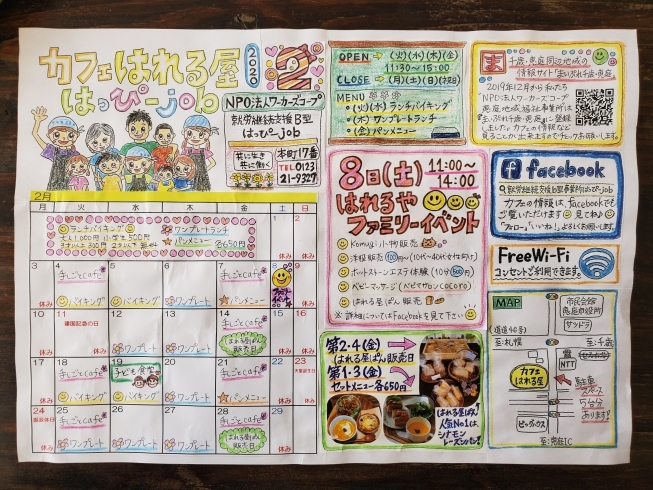 カフェはれる屋
はっぴーjob
2020
NPO法人ワーカーズコープ
就労継続支援B型
はっぴーjob
共に生き
共に働く
本町17番
TEL0123
21-9327
OPEN→(火)(水)(木)(金)
11:30〜15:00
CLOSE→(月)(土)(日)(祝日)
MENU
・(火)(水)ランチバイキング
・(木)ワンプレートランチ
・(金)パンメニュー
千歳・恵庭周辺地域の
情報サイト「まいぷれ千歳・恵庭」
2019年12月から私たち
NPO法人ワーカーズコープ
恵庭地域福祉事業所は
8日(土) 11:00〜
14:00
はれるや
ファミリーイベント
Komugi小物販売
ホットストーンエステ体験(10分500円)
ベビーマッサージ(ベビマサロンcocoro)
はれる屋ぱん販売
※詳細についてはFacebookを見て下さい
facebook
カフェの情報は、facebookでも
ご覧いただけます 見てね♪
FreeWi-Fi
コンセントご利用できます。
2月
月 火 水 木 金 土 日
ランチバイキング
大人1,000円 小学生500円
ワンプレートランチ
パンメニュー 各650円
1 休み 2 休み
3 休み 4 手しごとcafe バイキング 5 バイキング 6 ワンプレート 7 手しごとcafe パンメニュー 8 ファミリーイベント 9 休み
10 休み 11 建国記念の日 休み 12 バイキング 13 ワンプレート 14 手しごとcafe はれる屋ぱん販売日 15 休み 16 休み
17 休み 18 手しごとcafe バイキング 19 子ども食堂 バイキング 20 ワンプレート 21 パンメニュー 22 休み 23 天皇誕生日 休み
24 振替休日 休み 25 手しごとcafe ワンプレート 26 ワンプレート 27 ワンプレート 28 手しごとcafe はれる屋ぱん販売日 29 休み
第2・4(金)
はれる屋ぱん販売日
第1・3(金)
セットメニュー各650円
はれる屋ぱん!
人気No.1は、
シナモン
レーズンパン!
MAP
道道46号
市民会館
恵庭市役所
至:札幌
至:千歳
カフェ
はれる屋
NTT
駐車
スペース
5台分
あります!
ビッグハウス
至:恵庭IC